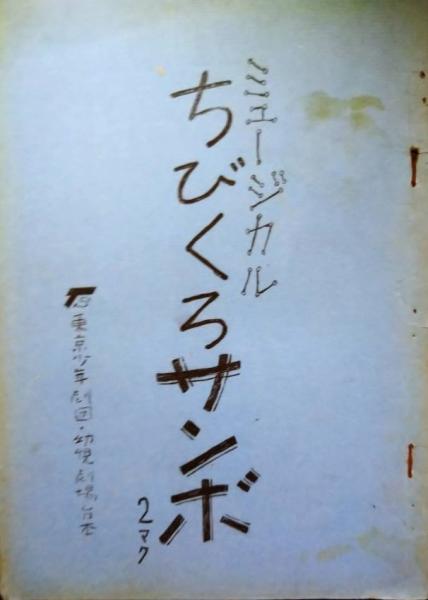 ミュージカル
ちびくろサンボ
2マク
東京少年劇団・幼児劇場台本